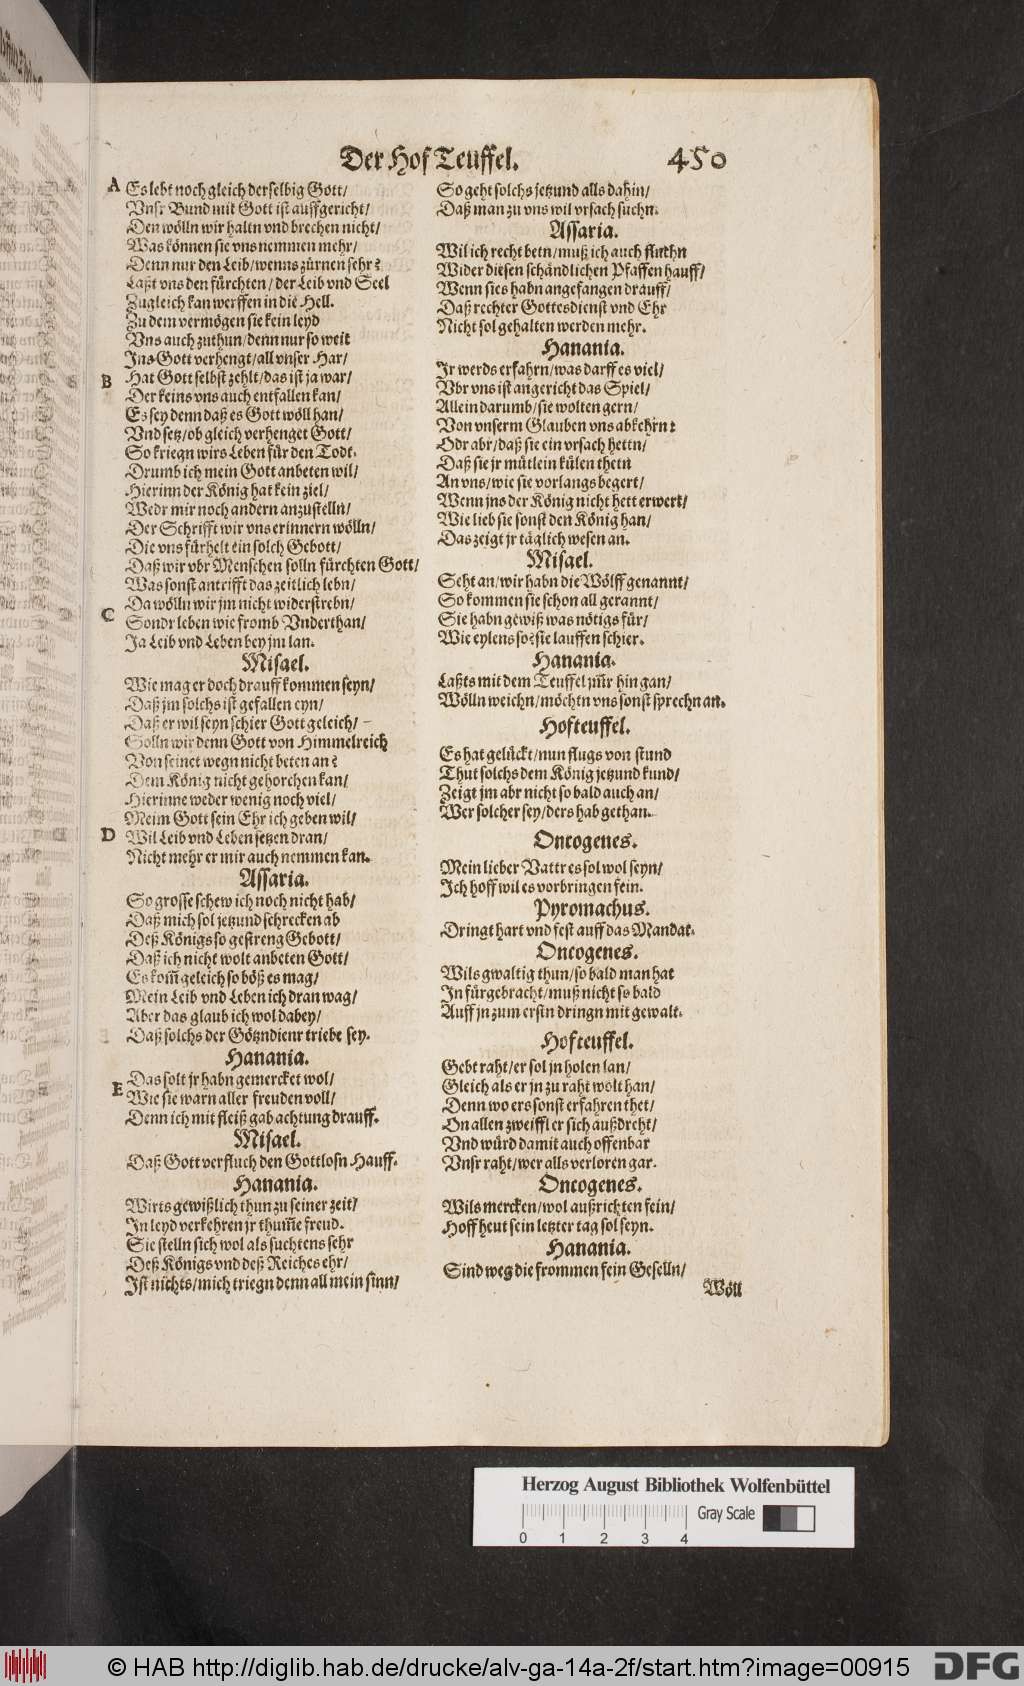 Der Hof Teuffel. 450
A Es lebt noch gleich derselbig Gott/
Vnsr Bund mit Gott ist auffgericht/
Den wölln wir haltn vnd brechen nicht/
Was können sie vns nemmen mehr/
Denn nur den Leib/wenns zürnen sehr?
Laßt vns den fürchten/ der Leib vnd Seel
Zugleich kan werffen in die Hell.
Zu dem vermögen sie kein leyd
Vns auch zuthun/denn nur so weit
Jns Gott verhengt/all vnser Har/
B Hat Gott selbst zehlt/das ist ja war/
Der keins vns auch entfallen kan/
Es sey denn daß es Gott wöll han/
Vnd setz/ob gleich verhenget Gott/
So kriegn wirs Leben für den Todt.
Drumb ich mein Gott anbeten wil/
Hierinn der König hat kein ziel/
Wedr mir noch andern anzustelln/
Der Schrifft wir vns erinnern wölln/
Die vns fürhelt ein solch Gebott/
Daß wir vbr Menschen solln fürchten Gott/
Was sonst antrifft das zeitlich lebn/
Da wölln wir jm nicht widerstrebn/
C Sondr leben wie fromb Vnderthan/
Ja Leib vnd Leben bey jm lan.
Misael.
Wie mag er doch drauff kommen seyn/
Daß jm solchs ist gefallen eyn/
Daß er wil seyn schier Gott geleich/
Solln wir denn Gott von Himmelreich
Von seinet wegn nicht beten an?
Dem König nicht gehorchen kan/
Hierinne weder wenig noch viel/
Meim Gott sein Ehr ich geben wil/
D Wil Leib vnd Leben setzen dran/
Nicht mehr er mir auch nemmen kan.
Assaria.
So grosse schew ich noch nicht hab/
Daß mich sol jetzund schrecken ab
Deß Königs so gestreng Gebott/
Daß ich nicht wolt anbeten Gott/
Es kom̃ geleich so böß es mag/
Mein Leib vnd Leben ich dran wag/
Aber das glaub ich wol dabey/
Daß solchs der Götzndienr triebe sey.
Hanania.
Das solt jr habn gemercket wol/
E Wie sie warn aller freuden voll/
Denn ich mit fleiß gab achtung drauff.
Misael.
Daß Gott verfluch den Gottlosn Hauff.
Hanania.
Wirts gewißlich thun zu seiner zeit/
Jn leyd verkehren jr thum̃e freud.
Sie stelln sich wol als suchtens sehr
Deß Königs vnd deß Reiches ehr/
Jst nichts/mich triegn denn all mein sinn/
So geht solchs jetzund alls dahin/
Daß man zu vns wil vrsach suchn.
Assaria.
Wil ich recht betn/muß ich auch fluchn
Wider diesen schändlichen Pfaffen hauff/
Wenn sies habn angefangen drauff/
Daß rechter Gottesdienst vnd Ehr
Nicht sol gehalten werden mehr.
Hanania.
Jr werds erfahrn/was darff es viel/
Vbr vns ist angericht das Spiel/
Allein darumb/sie wolten gern/
Von vnserm Glauben vns abkehrn:
Odr abr/daß sie ein vrsach hettn/
Daß sie jr mütlein külen thetn
An vns/wie sie vorlangs begert/
Wenn jns der König nicht hett erwert/
Wie lieb sie sonst den König han/
Das zeigt jr täglich wesen an.
Misael.
Seht an/wir habn die Wölff genannt/
So kommen sie schon all gerannt/
Sie habn gewiß was nötigs für/
Wie eylens so? sie lauffen schier.
Hanania.
Laßts mit dem Teuffel jm̃r hin gan/
Wölln weichn/möchtn vns sonst sprechn an.
Hofteuffel.
Es hat gelückt/nun flugs von stund
Thut solchs dem König jetzund kund/
Zeigt jm abr nicht so bald auch an/
Wer solcher sey/ders hab gethan.
Oncogenes.
Mein lieber Vattr es sol wol seyn/
Jch hoff wil es vorbringen fein.
Pyromachus.
Dringt hart vnd fest auff das Mandat.
Oncogenes.
Wils gwaltig thun/so bald man hat
Jn fürgebracht/muß nicht so bald
Auff jn zum erstn dringn mit gewalt.
Hofteuffel.
Gebt raht/er sol jn holen lan/
Gleich als er jn zu raht wölt han/
Denn wo ers sonst erfahren thet/
On allen zweiffl er sich außdreht/
Vnd würd damit auch offenbar
Vnsr raht/wer alls verloren gar.
Oncogenes.
Wils mercken/wol außrichten fein/
Hoff heut sein letzter tag sol seyn.
Hanania.
Sind weg die frommen fein Geselln/
Wöll
Herzog August Bibliothek Wolfenbüttel
Gray Scale
0 1 2 3 4
© HAB http://diglib.hab.de/drucke/alv-ga-14a-2f/start.htm?image=00915
DFG